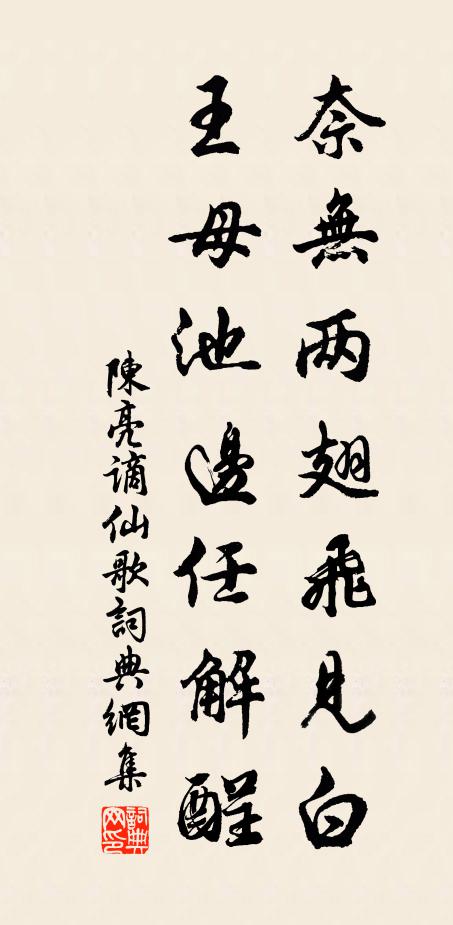 奈無两翅飛見白
王母池邊任解酲
陳亮謫仙歌詞典網集
詞典
网印